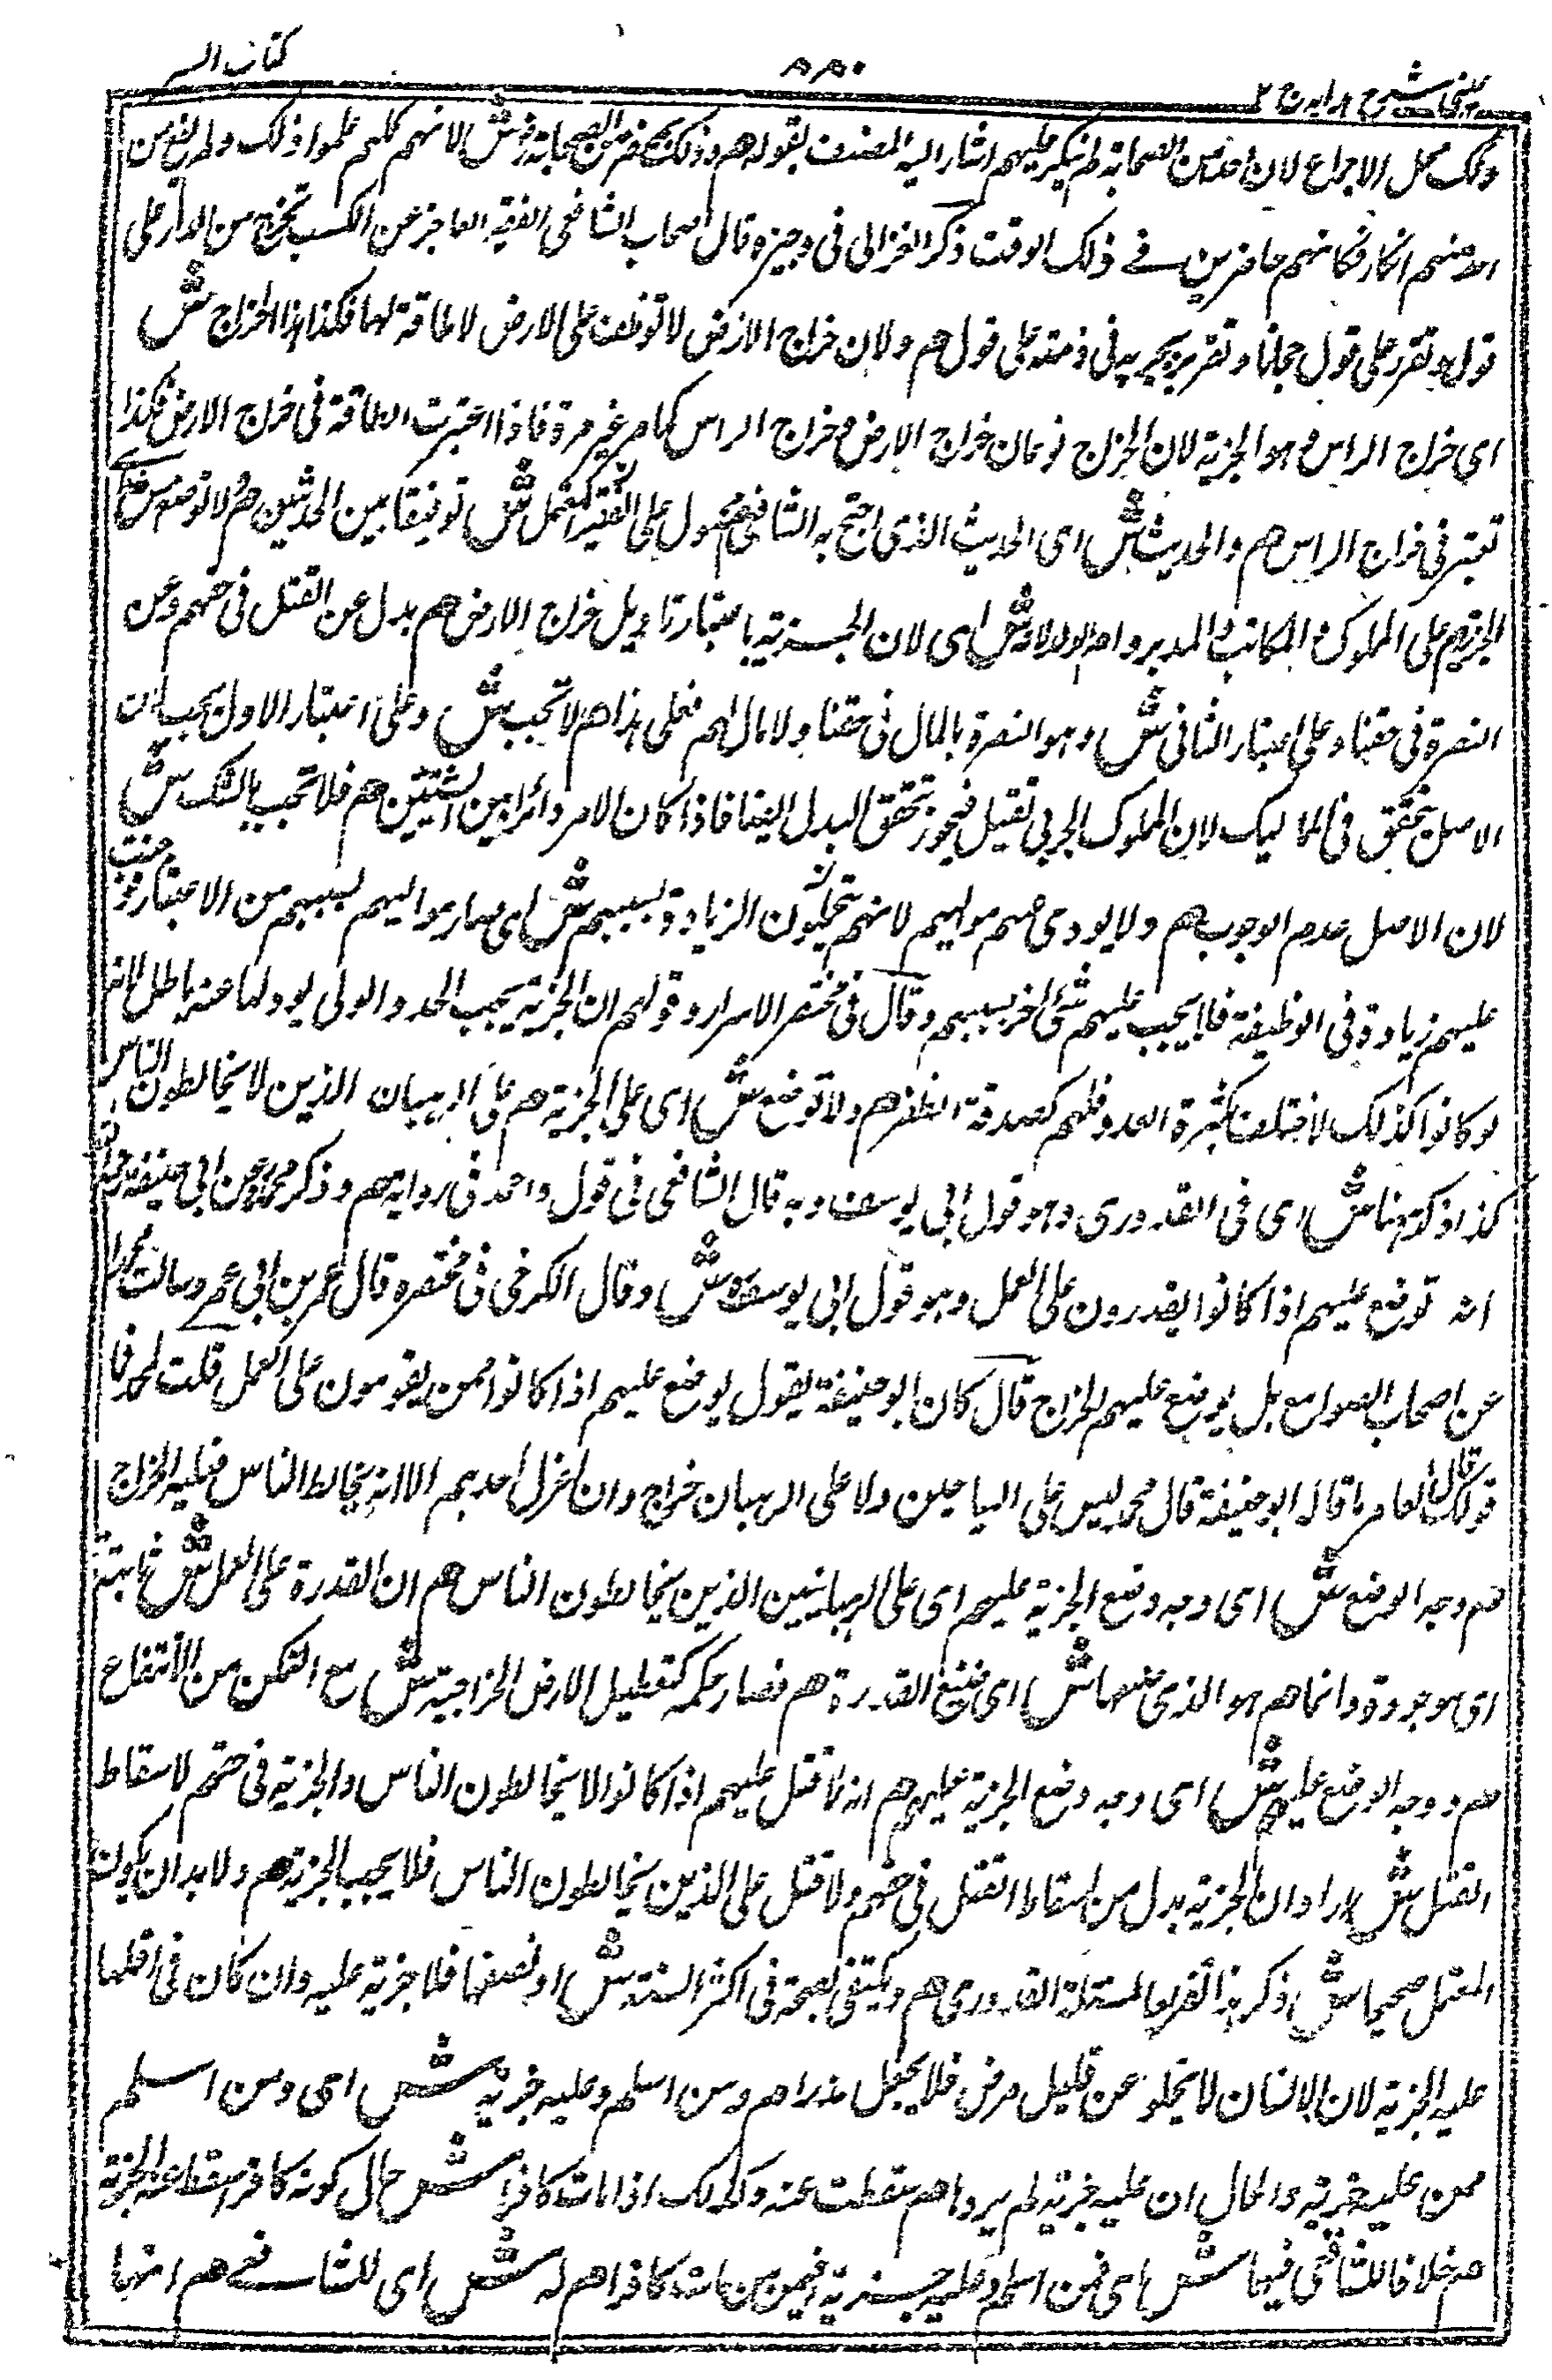 عینی شرح هدایه ج ٢
٨٨٠
کتاب السیر
وذلک محل الاجماع لان احدا من الصحابة لم ینکر علیهم اشار الیه المصنف بقوله هم وذلک بمحضر من الصحابة رض ش لانهم کلهم علموا ذلک ولم یقع من
احد منهم انکار فکانهم حاضرین فی ذلک الوقت ذکر الغزالی فی وجیزه قال اصحاب الشافعی الفقیر العاجز عن الکسب یخرج من الدار علی
قول ویقر علی قول مجانا وتقریر بجزیه فی ذمته علی قول هم ولان خراج الارض لا توظف علی الارض لا طاقة لها فکذا هذا الخراج ش
ای خراج الراس وهو الجزیة لان الخراج نوعان خراج الارض وخراج الراس کما مر غیر مرة فاذا اعتبرت الطاقة فی خراج الارض فکذا
تعتبر فی خراج الراس هم والحدیث ش ای الحدیث الذی احتج به الشافعی هم محمول علی الفقیر المعتمل ش توفیقا بین الحدیثین هم ولا توضع ش ای
الجزیة هم علی المملوک والمکاتب والمدبر وام الولد لانه ش ای لان الجزیة باعتبار تاویل خراج الارض هم بدل عن القتل فی حقهم وعن
النصرة فی حقنا وعلی اعتبار الثانی ش وهو النصرة بالمال فی حقنا ولا مال لهم فعلی هذا هم لا تجب ش وعلی اعتبار الاول یجب لان
الاصل یتحقق فی الممالیک لان المملوک الحربی یقتل فیجوز تحقق البدل ایضا فاذا کان الامر دائرا بین الشیئین هم فلا تجب بالشک ش
لان الاصل عدم الوجوب هم ولا یودی عنهم موالیهم لانهم تحملوا الزیادة بسببهم ش ای صار موالیهم بسببهم من الاغنیاء وجبت
علیهم زیادة فی الوظیفة فلا یجب علیهم شئ اخر بسببهم وقال فی مختصر الاسرار وقولهم ان الجزیة یجب للحد والولی یودیها عنه باطل لانه
لو کانوا کذلک لاختلف بکثرة العدد وقلتهم کصدقة الفطر هم ولا توضع ش ای علی الجزیة هم علی الرهبان الذین لا یخالطون الناس
کذا ذکر ههنا ش ای فی القدوری وهو قول ابی یوسف وبه قال الشافعی فی قول واحمد فی روایة هم وذکر محمد عن ابی حنیفة
انه توضع علیهم اذا کانوا یقدرون علی العمل وهو قول ابی یوسف ش وقال الکرخی فی مختصره قال عمر بن ابی عمرو سالت محمدا
عن اصحاب الصوامع هل یوضع علیهم الخراج قال کان ابو حنیفة یقول یوضع علیهم اذا کانوا ممن یقومون علی العمل قلت لمحمد فما
قولک قال ما قاله ابو حنیفة قال محمد لیس علی السیاحین ولا علی الرهبان خراج وان اعتزل احدهم الا انه یخالط الناس فعلیه الخراج
هم وجه الوضع ش ای وجه وضع الجزیة علیهم ای علی الرهبانیین الذین یخالطون الناس هم ان القدرة علی العمل ش ثابتة
ای موجودة وانما هم هو الذی ضیعها ش ای ضیع القدرة هم فصار حکمه کتعطیل الارض الخراجیة ش مع التمکن من الانتفاع
هم ووجه الوضع علیهم ش ای وجه وضع الجزیة علیهم هم انه لا قتل علیهم اذا کانوا لا یخالطون الناس والجزیة فی حقهم لاسقاط
القتل ش اراد ان الجزیة بدل من اسقاط القتل فی حقهم ولا قتل علی الذین یخالطون الناس فلا یجب الجزیة هم ولا بد ان یکون
المعتمل صحیحا ش ذکر هذا تفریعا لمسئلة القدوری هم ویکتفی بصحته فی اکثر السنة ش او نصفها فلا جزیة علیه وان کان فی اقلها
علیه الجزیة لان الانسان لا یخلو عن قلیل مرض فلا یجعل عذرا هم ومن اسلم وعلیه جزیة ش ای ومن اسلم
ممن علیه جزیة والحال ان علیه جزیة لم یردها هم سقطت عنه وکذلک اذا مات کافرا ش حال کونه کافرا سقطت عنه الجزیة
هم خلافا للشافعی فیهما ش ای فیمن اسلم وعلیه جزیة وفیمن مات کافرا هم له ش ای للشافعی هم انها